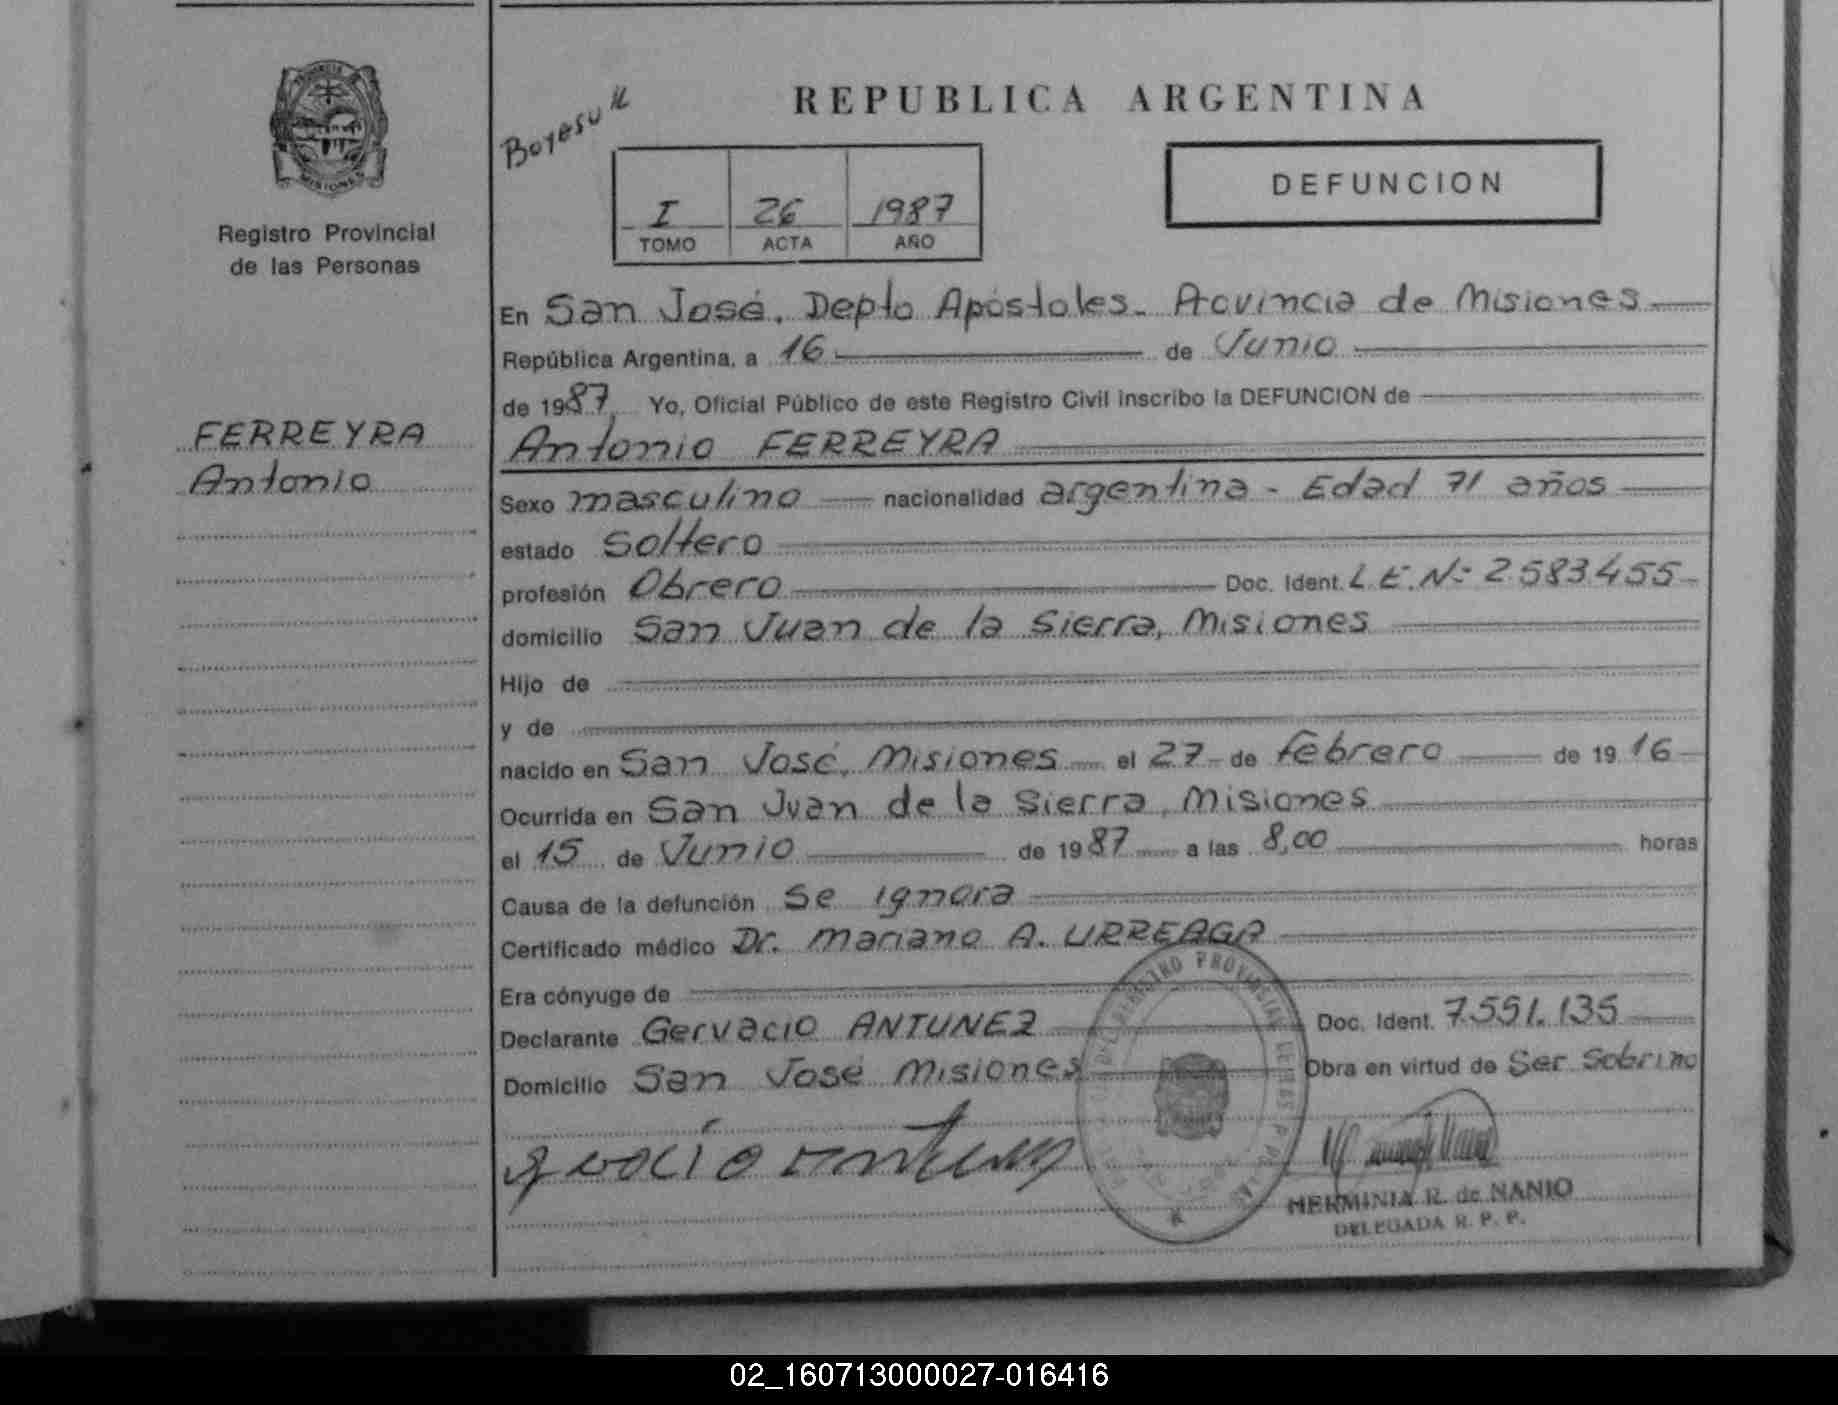 PROVINCIA DE
MISIONES
Registro Provincial
de las Personas
FERREYRA
Antonio
REPUBLICA ARGENTINA
I 26 1987
TOMO ACTA AÑO
DEFUNCION
En San José. Depto Apóstoles. Provincia de Misiones
República Argentina, a 16 de Junio
de 1987, Yo, Oficial Público de este Registro Civil inscribo la DEFUNCION de
Antonio FERREYRA
Sexo masculino nacionalidad argentina - Edad 71 años
estado Soltero
profesión Obrero Doc. Ident. L.E. Nº 2.583.455
domicilio San Juan de la Sierra, Misiones
Hijo de
y de
nacido en San José, Misiones el 27 de febrero de 1916
Ocurrida en San Juan de la Sierra, Misiones
el 15 de Junio de 1987 a las 8,00 horas
Causa de la defunción Se ignora
Certificado médico Dr. Mariano A. URREAGA
Era cónyuge de
Declarante Gervacio ANTUNEZ Doc. Ident. 7.551.135
Domicilio San José Misiones Obra en virtud de Ser Sobrino
HERMINIA R. de NANIO
DELEGADA R. P. P.
02_160713000027-016416